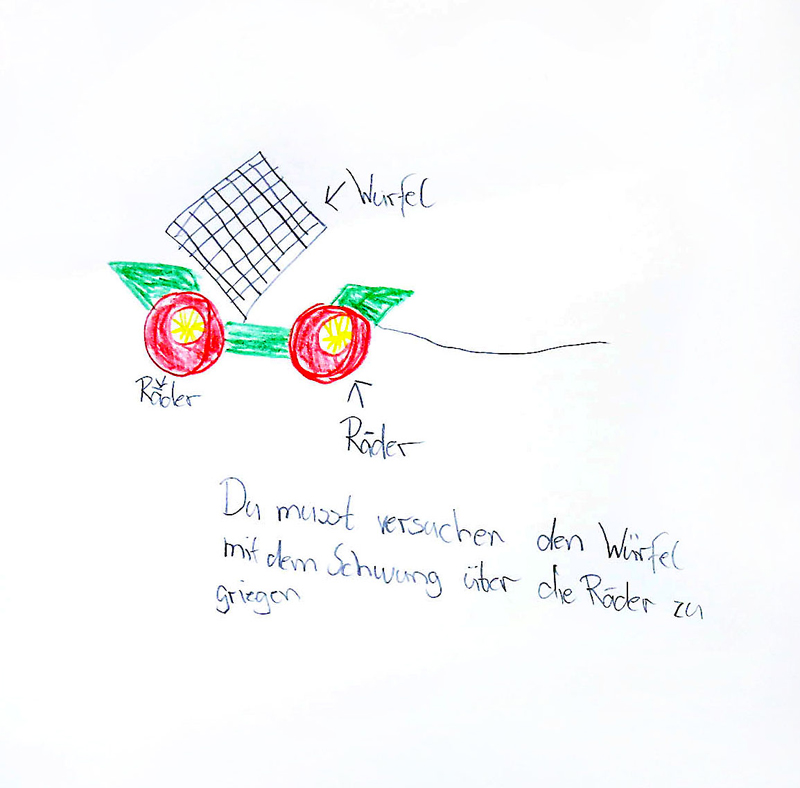 Würfel
Räder
Räder
Du musst versuchen den Würfel
mit dem Schwung über die Räder zu
griegen